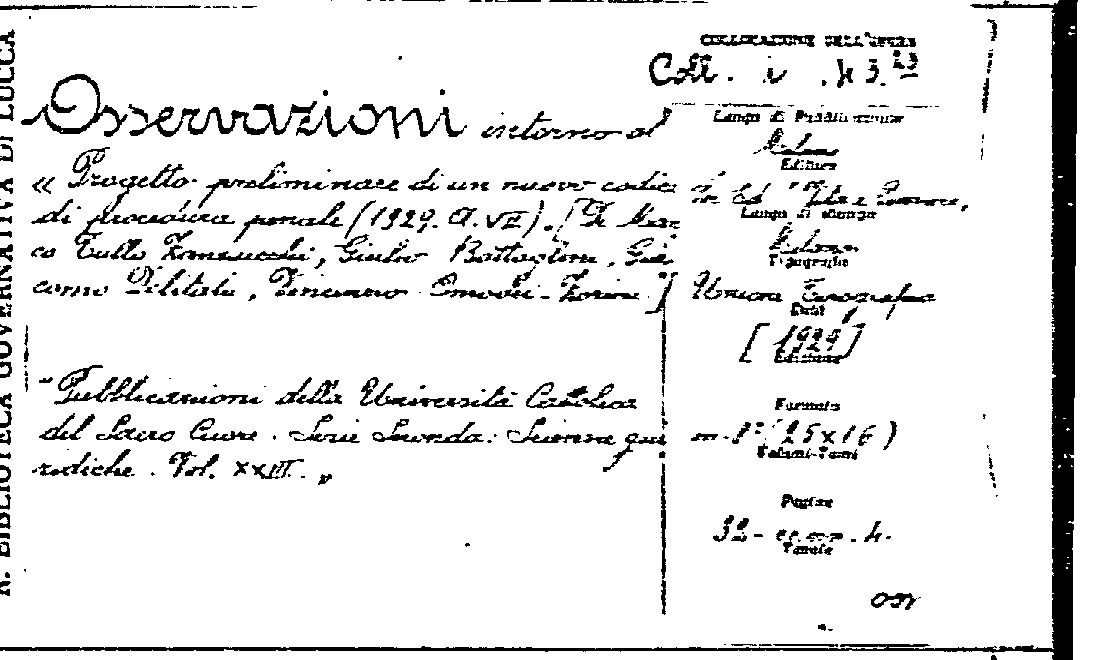 R. BIBLIOTECA GOVERNATIVA DI LUCCA
COLLOCAZIONE DELL'OPERA
Coll. i . 43.
Osservazioni intorno al
« Progetto preliminare di un nuovo codice
di procedura penale (1929. A. VII). [Di Mar
co Tullio Zanzucchi, Giulio Battaglini, Gia
como Delitala,
Pubblicazioni della Università Cattolica
del Sacro Cuore. Serie Seconda: Scienze giu
ridiche. Vol. XXIII. „
Luogo di Pubblicazione
Milano
Editore
Ed. "Vita e Pensiero,
Luogo di stampa
Milano
Tipografia
Unione Tipografica
Data
[1929]
Edizione
Formato
in-8° (25x16)
Volumi-Tomi
Pagine
32
Tavole